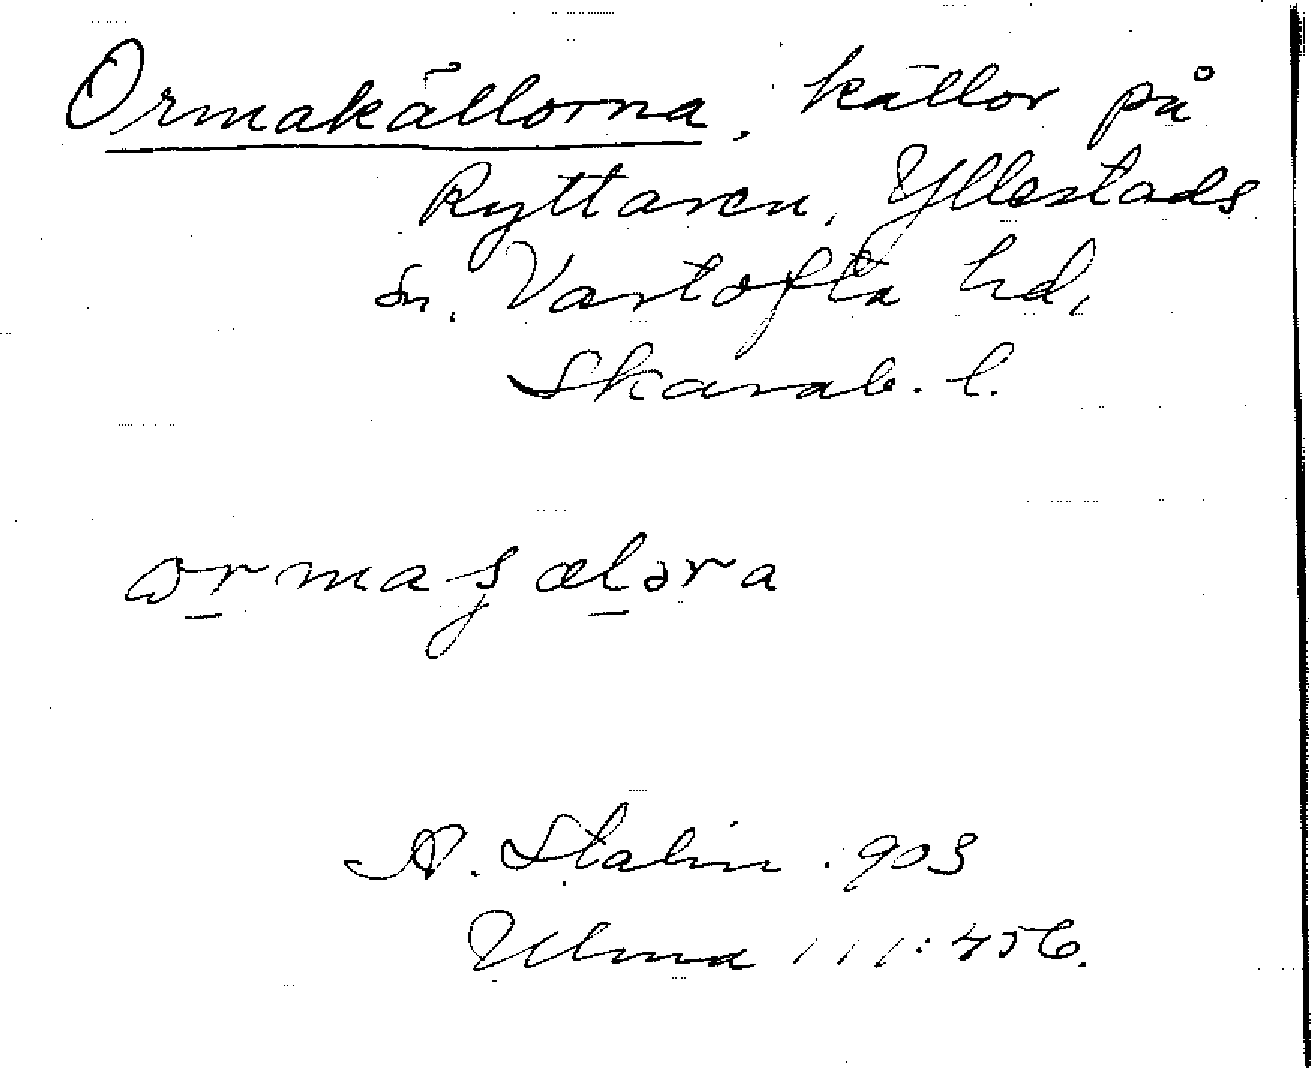 Ormakällorna, källor på
Ryttaren, Yllestads
sn. Vartofta hd,
Skarab. l.
ormaʂælǝra
A. Stalin. 903
Ulma 111:456.